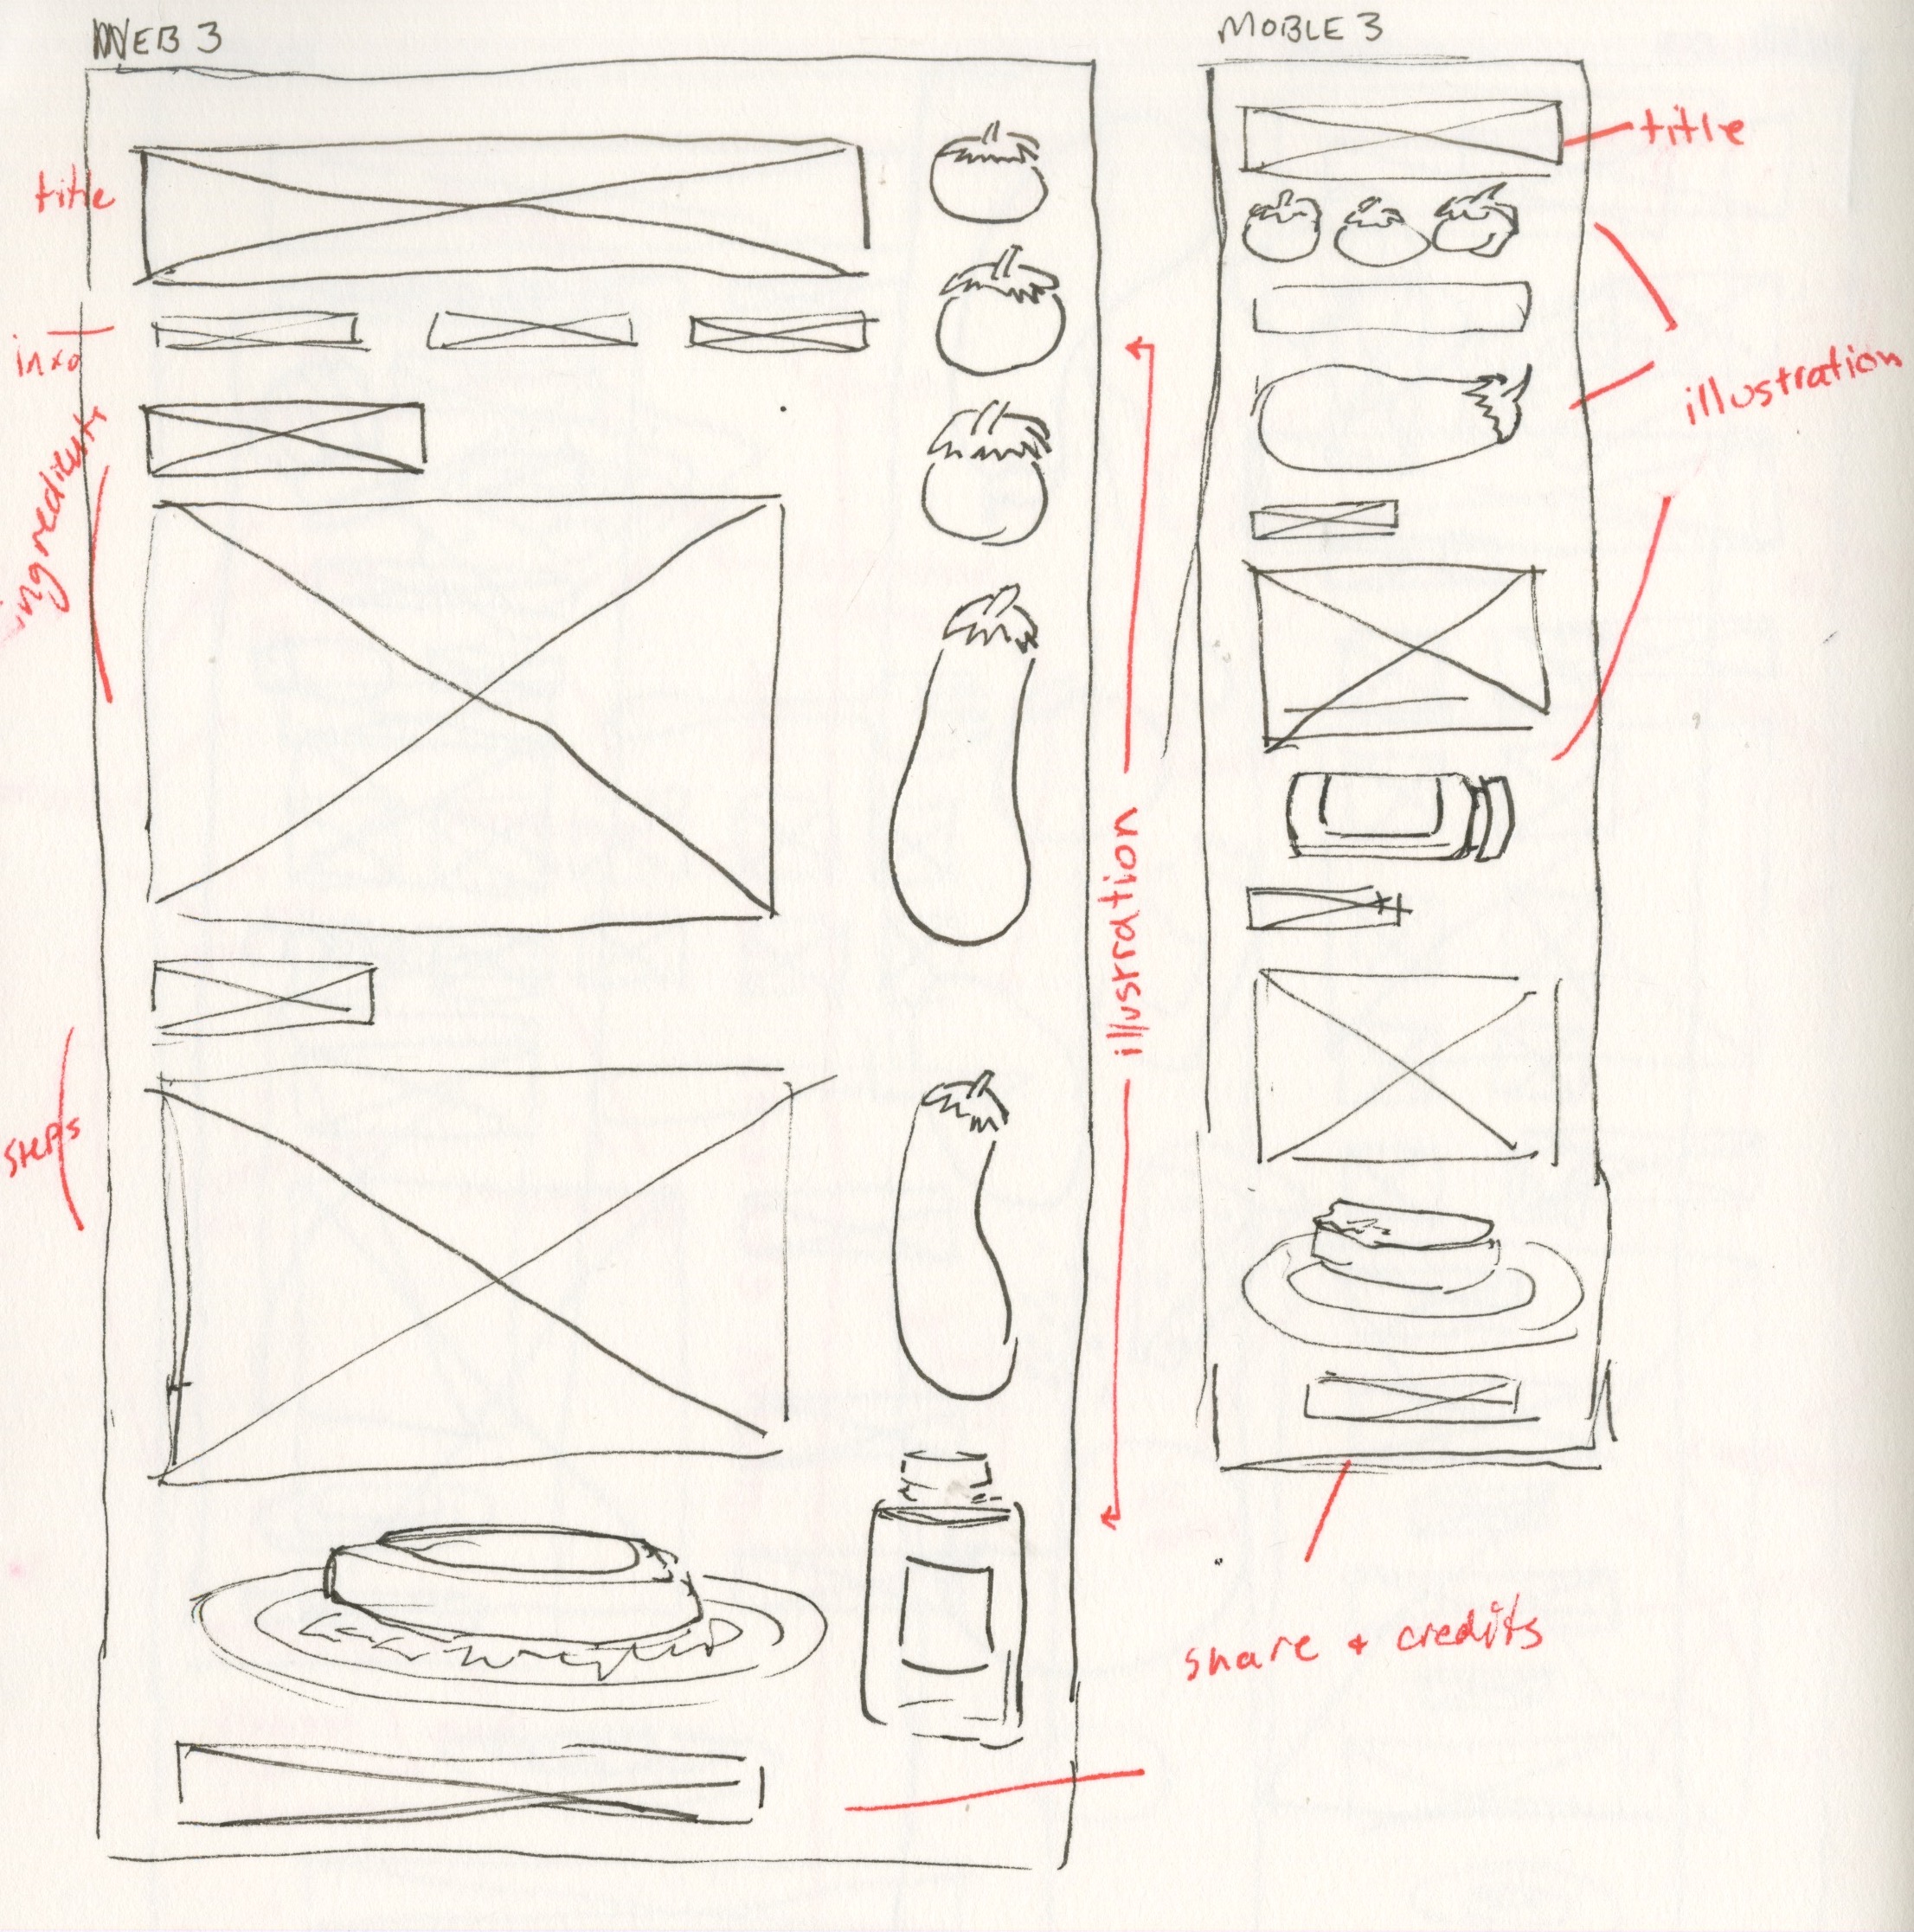 WEB 3
MOBLE 3
title
title
info
illustration
ingredients
illustration
steps
share + credits